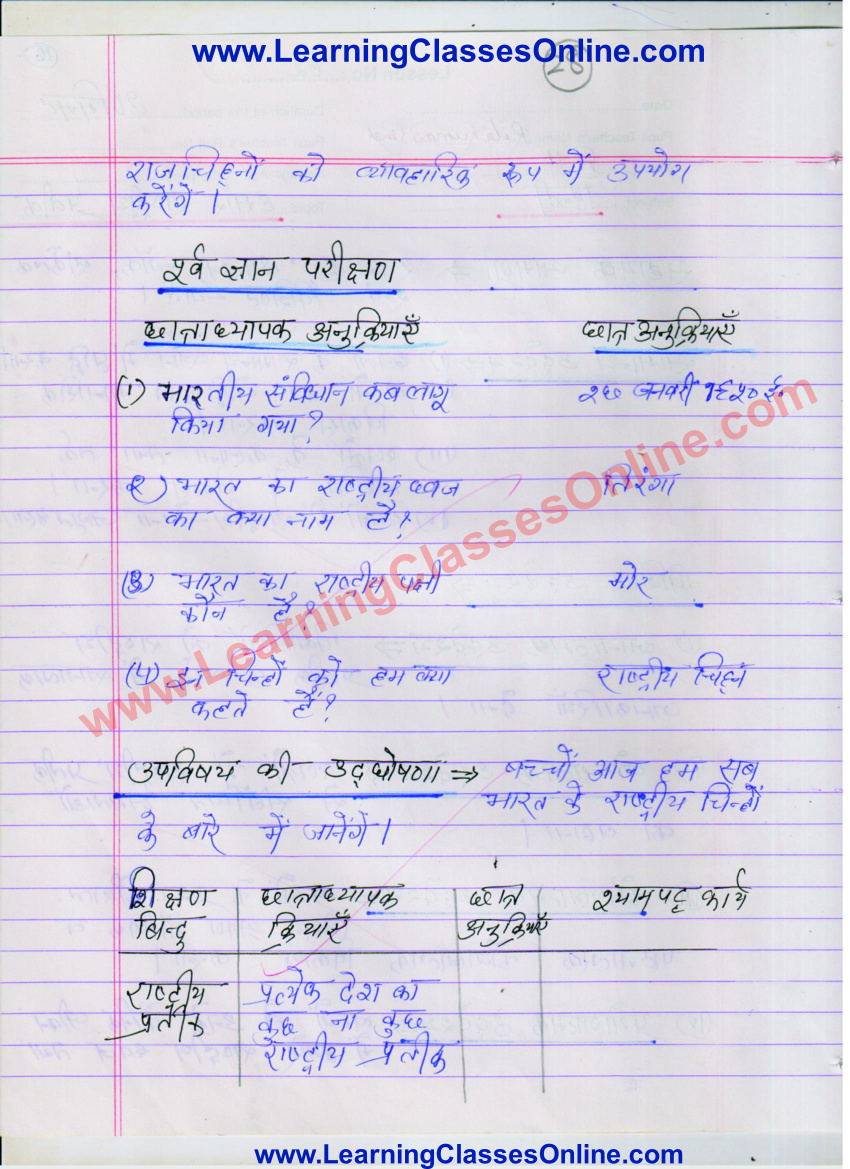 www.LearningClassesOnline.com
28
राजचिह्नों को व्यावहारिक रूप में उपयोग
करेंगें।
पूर्व ज्ञान परीक्षण
छात्राध्यापक अनुक्रियाएँ छात्र अनुक्रियाएँ
(१) भारतीय संविधान कब लागू २६ जनवरी १९५० ई०
किया गया?
२) भारत का राष्ट्रीय ध्वज तिरंगा
का क्या नाम है?
(३) भारत का राष्ट्रीय पक्षी मोर
कौन है?
(४) इन चिन्हों को हम क्या राष्ट्रीय चिह्न
कहते हैं?
उपविषय की उद्घोषणा ⇒ बच्चों आज हम सब
भारत के राष्ट्रीय चिन्हों
के बारे में जानेंगें।
शिक्षण छात्राध्यापक छात्र श्यामपट्ट कार्य
बिन्दु क्रियाएँ अनुक्रियाएँ
राष्ट्रीय प्रत्येक देश का
प्रतीक कुछ ना कुछ
राष्ट्रीय प्रतीक
www.LearningClassesOnline.com
www.LearningClassesOnline.com